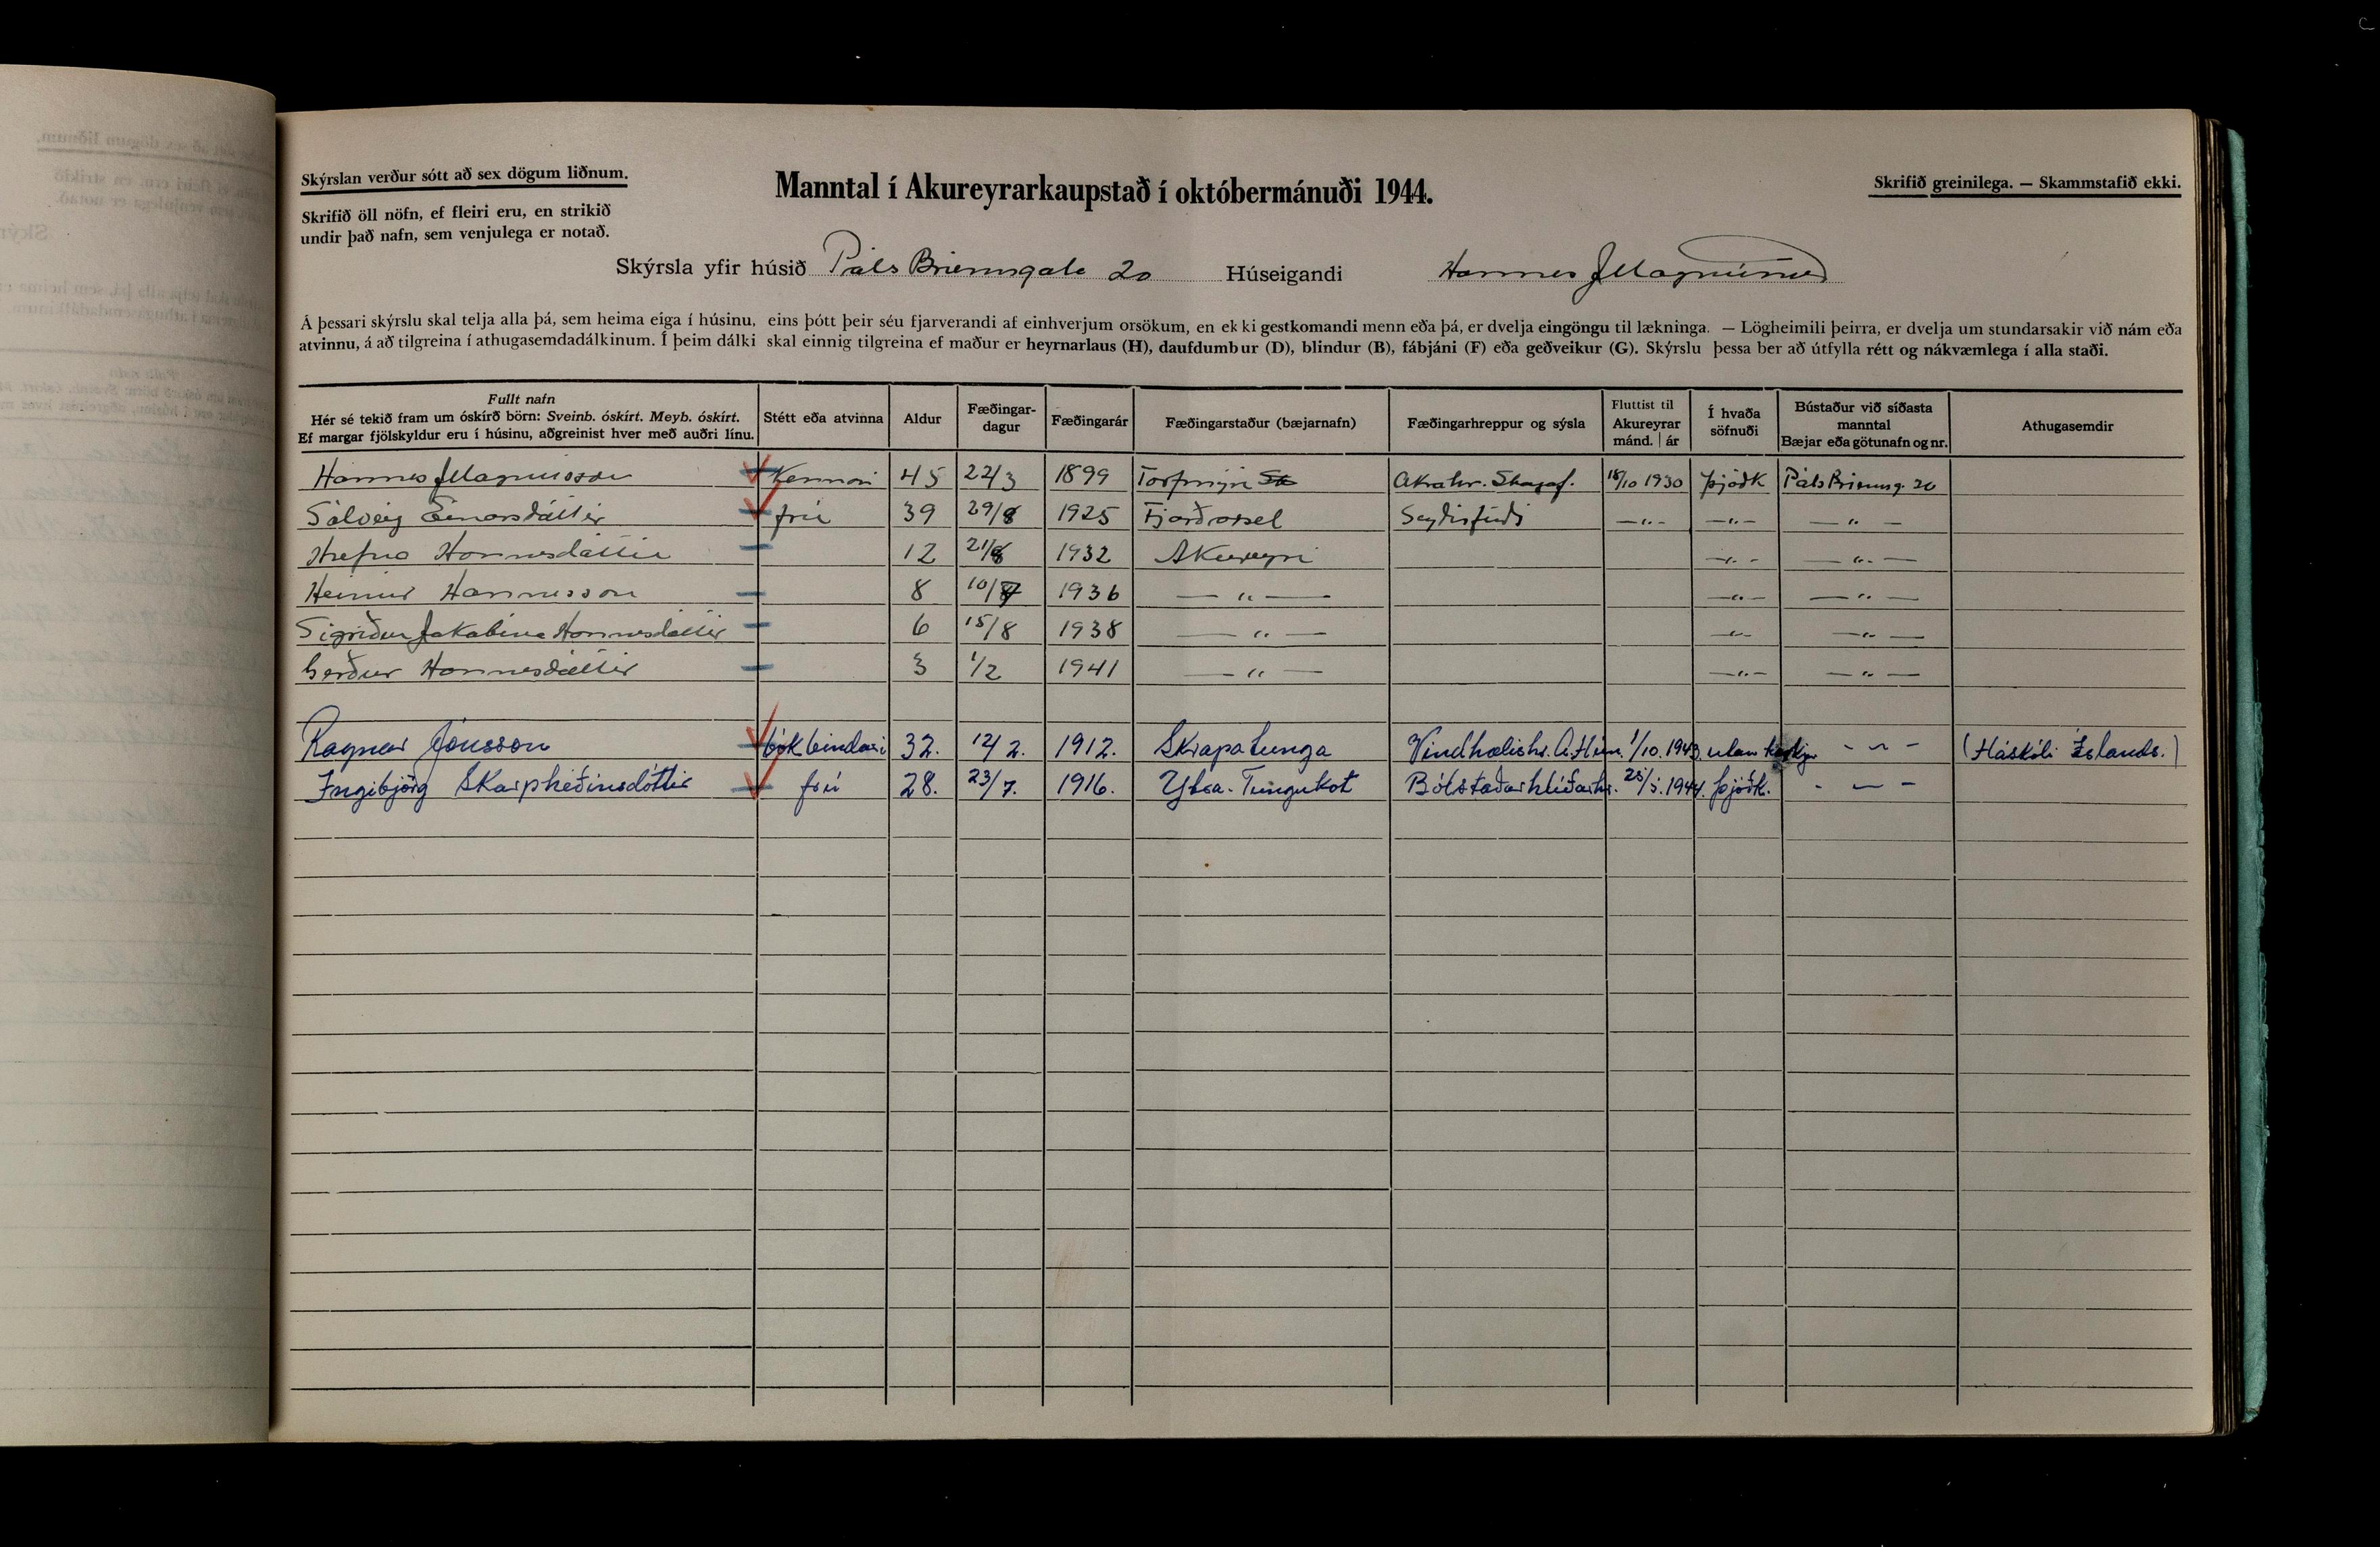 Skýrslan verður sótt að sex dögum liðnum.
Skrifið öll nöfn, ef fleiri eru, en strikið
undir það nafn, sem venjulega er notað.
Manntal í Akureyrarkaupstað í októbermánuði 1944.
Skrifið greinilega. — Skammstafið ekki.
Skýrsla yfir húsið Páls Briemsgata 20 Húseigandi Hannes J Magnússon
Á þessari skýrslu skal telja alla þá, sem heima eiga í húsinu, eins þótt þeir séu fjarverandi af einhverjum orsökum, en ekki gestkomandi menn eða þá, er dvelja eingöngu til lækninga. — Lögheimili þeirra, er dvelja um stundarsakir við nám eða
atvinnu, á að tilgreina í athugasemdadálkinum. Í þeim dálki skal einnig tilgreina ef maður er heyrnarlaus (H), daufdumbur (D), blindur (B), fábjáni (F) eða geðveikur (G). Skýrslu þessa ber að útfylla rétt og nákvæmlega í alla staði.
Fullt nafn
Hér sé tekið fram um óskírð börn: Sveinb. óskírt. Meyb. óskírt.
Ef margar fjölskyldur eru í húsinu, aðgreinist hver með auðri línu.
Stétt eða atvinna
Aldur
Fæðingar-
dagur
Fæðingarár
Fæðingarstaður (bæjarnafn)
Fæðingarhreppur og sýsla
Fluttist til
Akureyrar
mánd. | ár
Í hvaða
söfnuði
Bústaður við síðasta
manntal
Bæjar eða götunafn og nr.
Athugasemdir
Hannes J Magnússon Kennari 45 22/3 1899 Torfmýri Akrahr. Skagaf. 18/10 1930 Þjóðk Páls Briemsg. 20
Sólveig Einarsdóttir frú 39 29/8 1925 Fjarðarsel Seyðisfirði —"— —"— —"—
Hrefna Hannesdóttir 12 21/8 1932 Akureyri —"— —"—
Heimir Hannesson 8 10/7 1936 —"— —"— —"—
Sigríður Jakobína Hannesdóttir 6 15/8 1938 —"— —"— —"—
Gerður Hannesdóttir 3 1/2 1941 —"— —"— —"—
Ragnar Jónsson bókbindari 32. 12/2. 1912. Skrapatunga Vindhælishr. A. Hún. 1/10. 1943. utan kirkju - " - (Háskóli Íslands.)
Ingibjörg Skarphéðinsdóttir frú 28. 23/7. 1916. Ytra-Tungukot Bólstaðarhlíðarhr. 25/5. 1944. Þjóðk. - " -